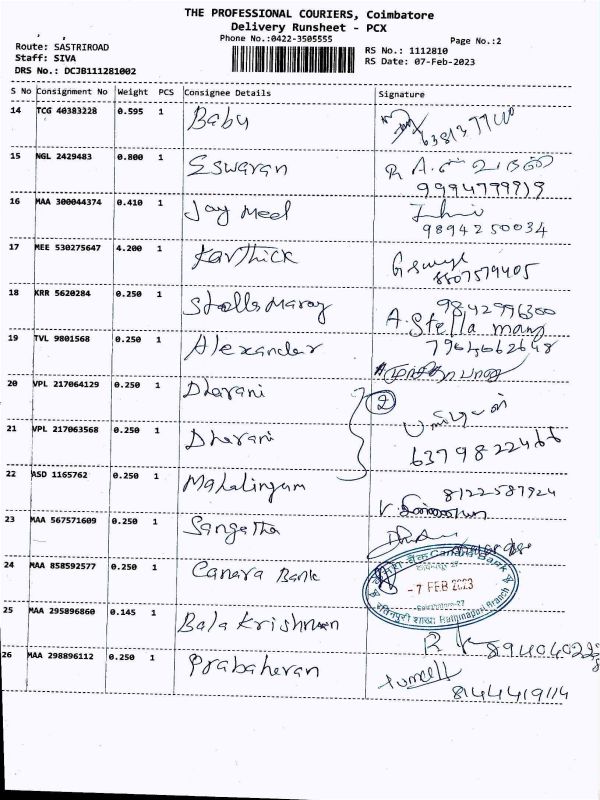 THE PROFESSIONAL COURIERS, Coimbatore
Delivery Runsheet - PCX
Phone No.:0422-3505555
Page No.:2
Route: SASTRIROAD
RS No.: 1112810
Staff: SIVA
RS Date: 07-Feb-2023
DRS No.: DCJB111281002
S No Consignment No Weight PCS Consignee Details Signature
14 TCG 40383228 0.595 1 Babu
15 NGL 2429483 0.800 1 Eswaran
9994779919
16 MAA 300044374 0.410 1 Jay Meel
9894250034
17 MEE 530275647 4.200 1 Karthick
8807579405
18 KRR 5620284 0.250 1 Stella Maray 9842996300
A. Stella mary
19 TVL 9801568 0.250 1 Alexander 7964662648
20 VPL 217064129 0.250 1 Dharani 2
21 VPL 217063568 0.250 1 Dharani 6379822466
22 ASD 1165762 0.250 1 Mahalingam 8122587924
23 MAA 567571609 0.250 1 Sangetha
24 MAA 858592577 0.250 1 Canara Bank
Canara Bank
-7 FEB 2023
Rathinapuri Branch
25 MAA 295896860 0.145 1 Bala Krishnan
26 MAA 298896112 0.250 1 Prabaharan
8144419114